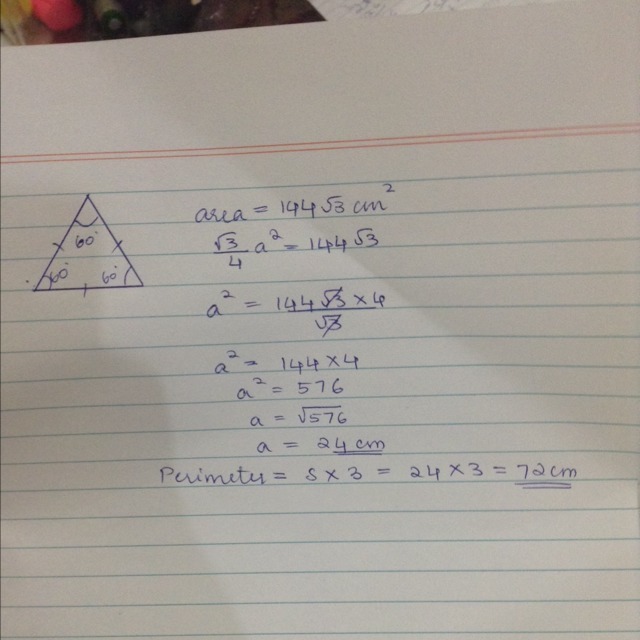 60°
60° 60°
area = 144√3 cm²
√3/4 a² = 144√3
a² = 144√3 × 4 / √3
a² = 144 × 4
a² = 576
a = √576
a = 24 cm
Perimeter = s × 3 = 24 × 3 = 72 cm